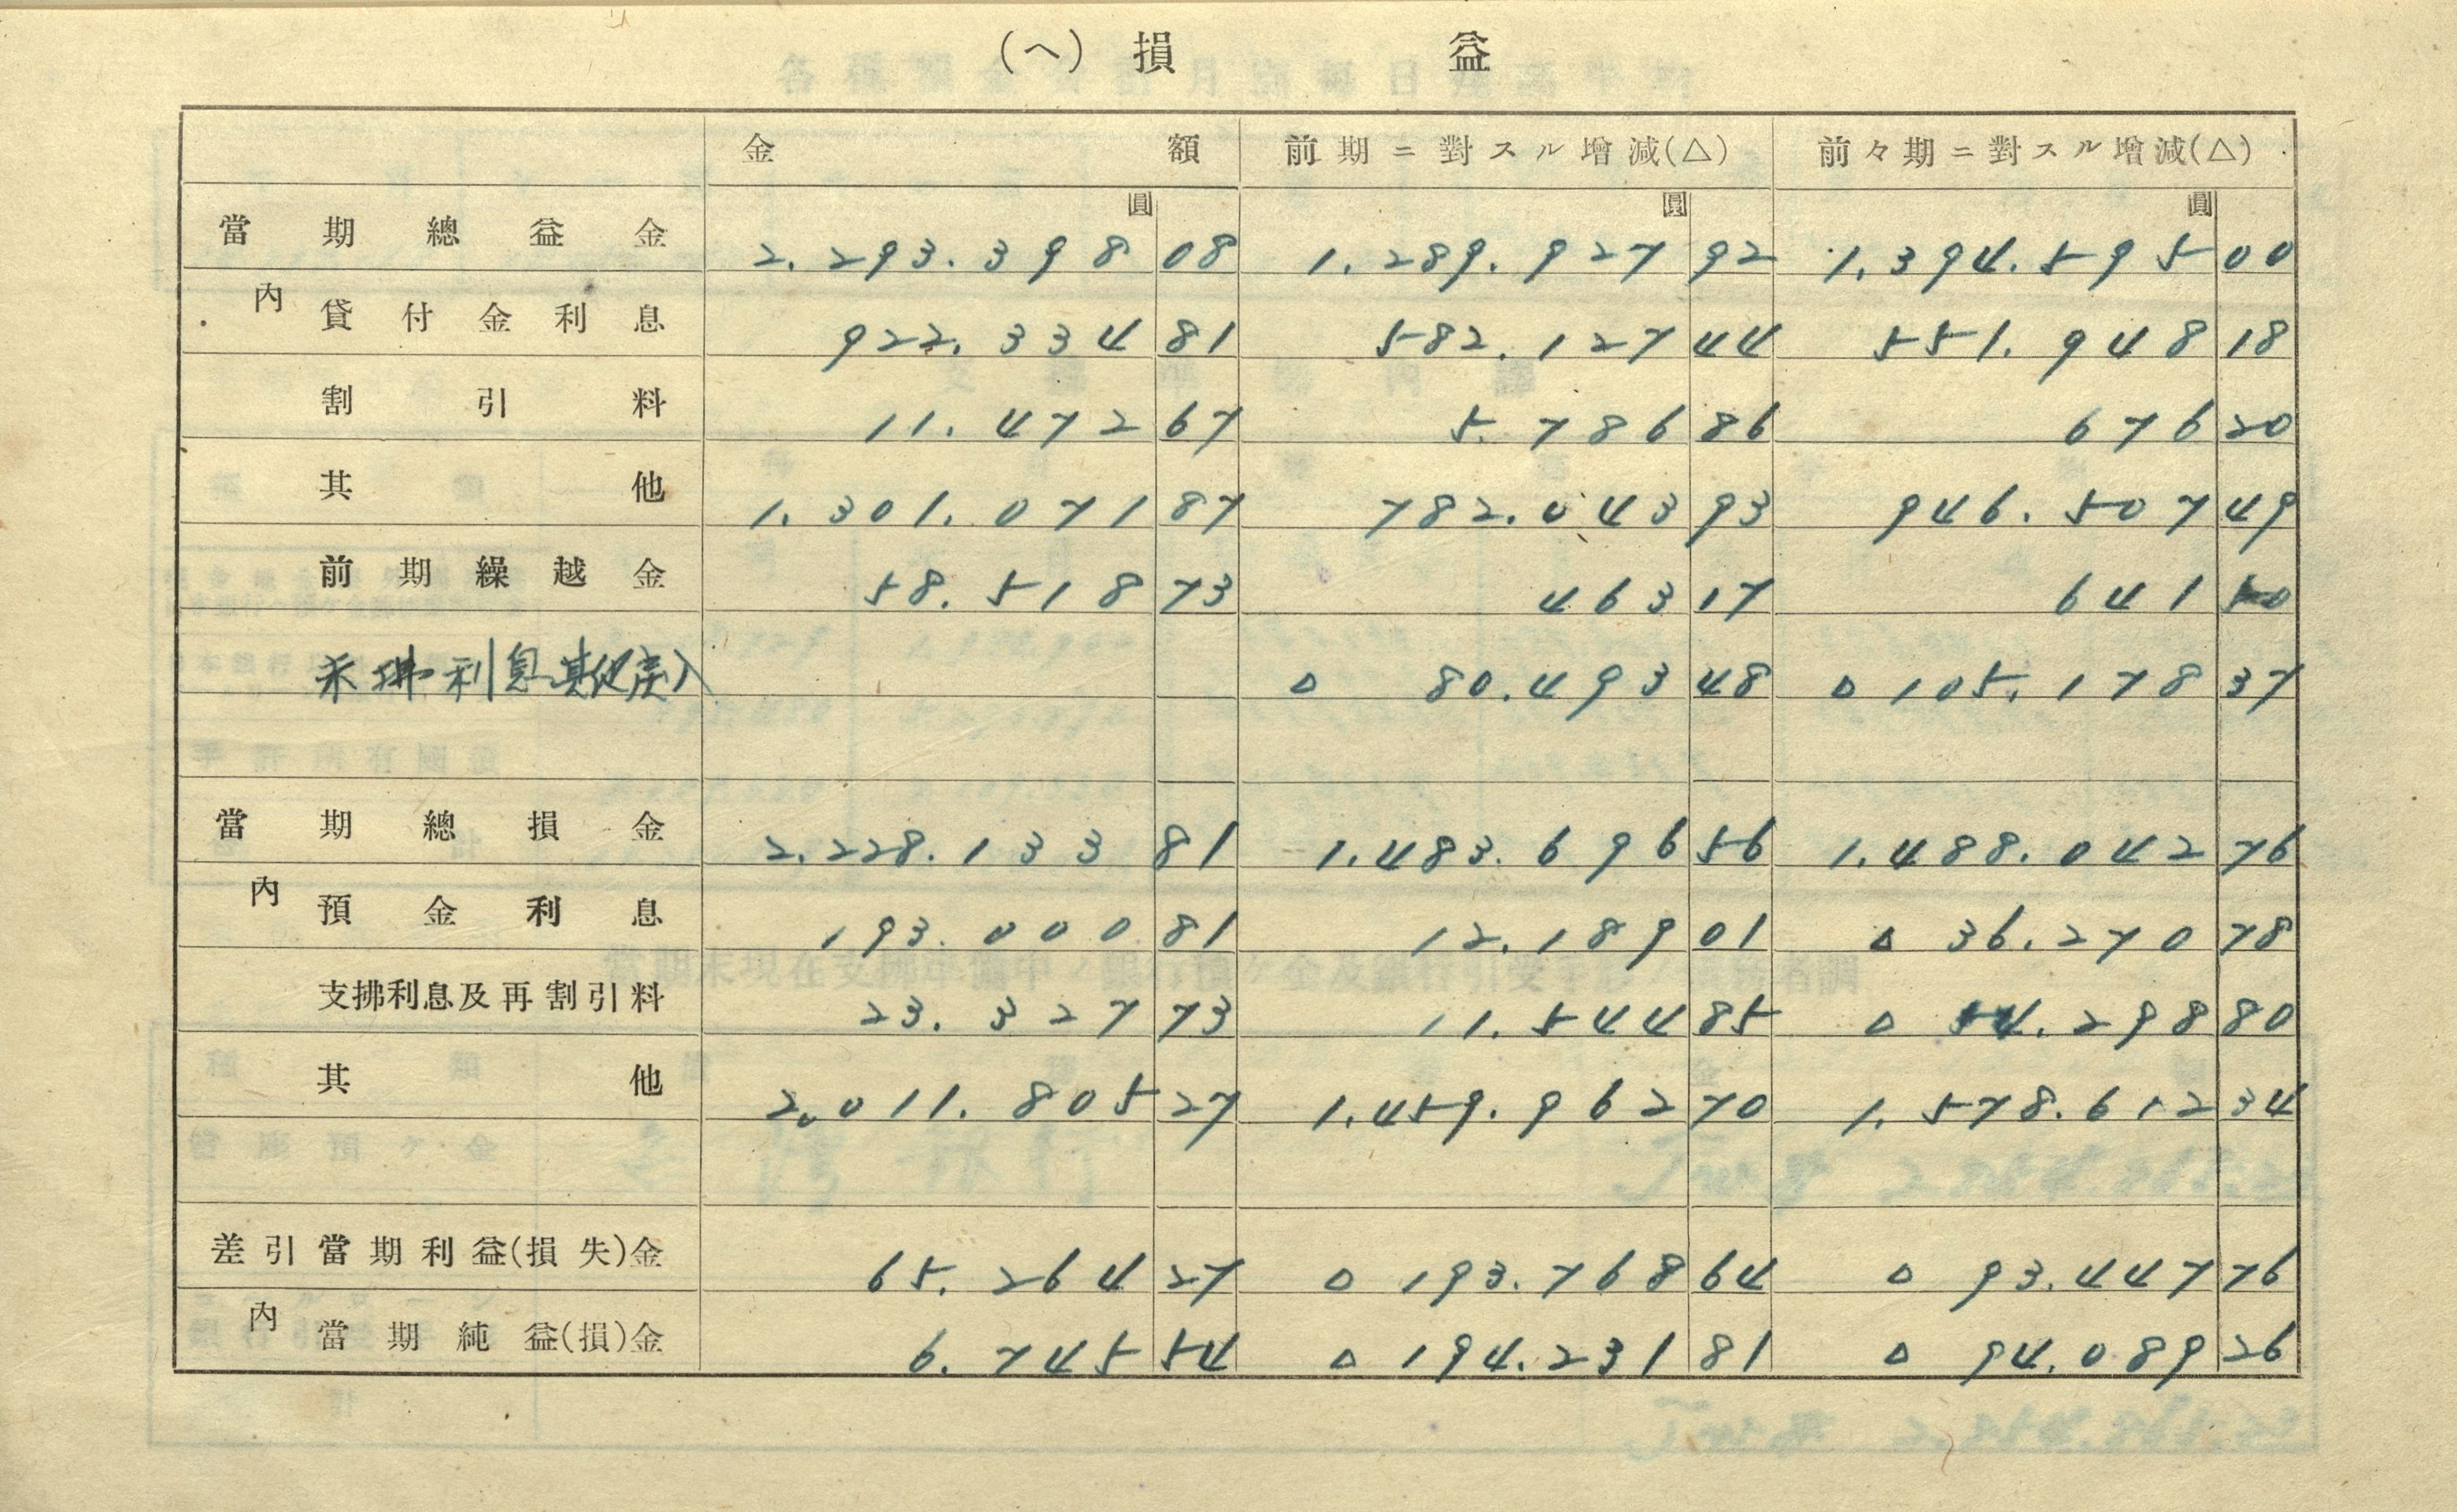 (ヘ) 損 益
金 額 前期ニ對スル增減(△) 前々期ニ對スル增減(△)
圓 圓 圓
當期總益金 2.293.398 08 1.289.927 92 1.394.595 00
內 貸付金利息 922.334 81 582.127 44 551.948 18
割引料 11.472 67 5.786 86 676 20
其他 1.301.071 87 782.043 93 946.507 49
前期繰越金 58.518 73 463 17 641 50
未拂利息其他戻入 △ 80.493 48 △ 105.178 37
當期總損金 2.228.133 81 1.483.696 56 1.488.042 76
內 預金利息 193.000 81 12.189 01 △ 36.270 78
支拂利息及再割引料 23.327 73 11.544 85 △ 54.298 80
其他 2.011.805 27 1.459.962 70 1.578.612 34
差引當期利益(損失)金 65.264 27 △ 193.768 64 △ 93.447 76
內 當期純益(損)金 6.745 54 △ 194.231 81 △ 94.089 26